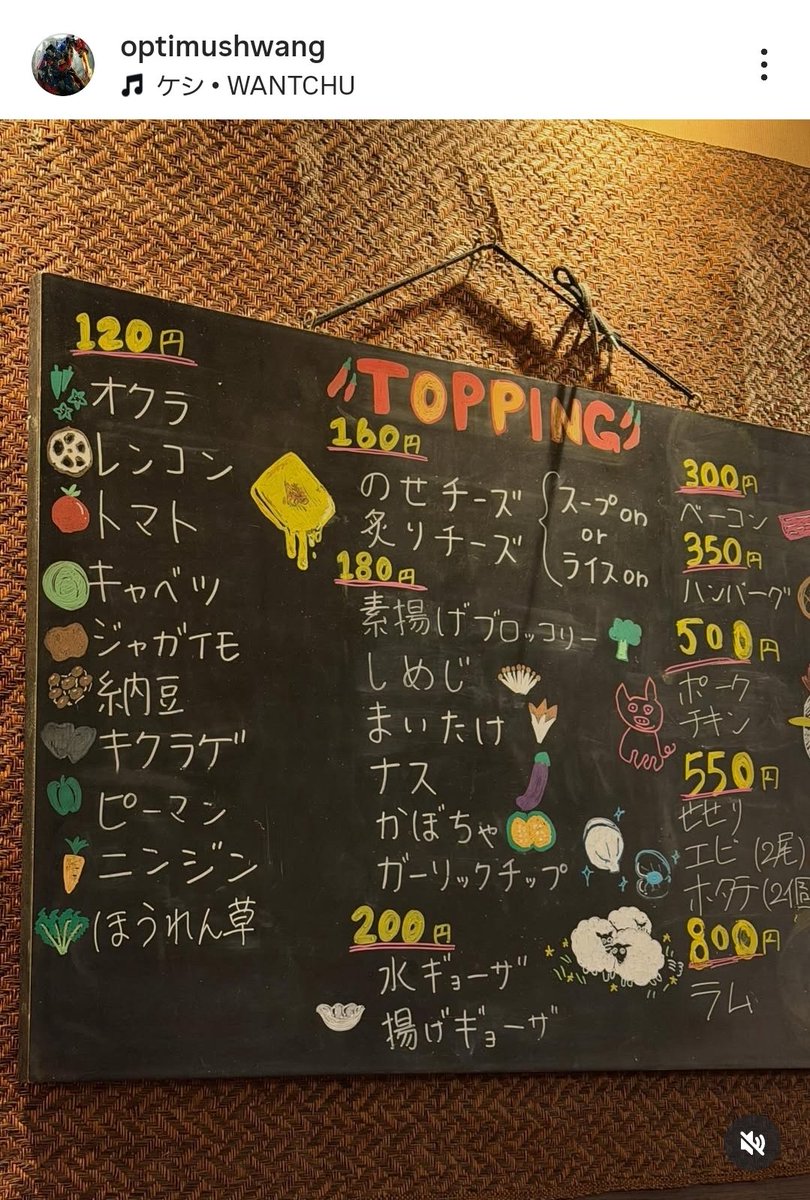 optimushwang
ケシ • WANTCHU
120円
オクラ
レンコン
トマト
キャベツ
ジャガイモ
納豆
キクラゲ
ピーマン
ニンジン
ほうれん草
TOPPING
160円
のせチーズ
炙りチーズ
スープon
or
ライスon
180円
素揚げブロッコリー
しめじ
まいたけ
ナス
かぼちゃ
ガーリックチップ
200円
水ギョーザ
揚げギョーザ
300円
ベーコン
350円
ハンバーグ
500円
ポーク
チキン
550円
せせり
エビ(2尾)
ホタテ(2個
800円
ラム